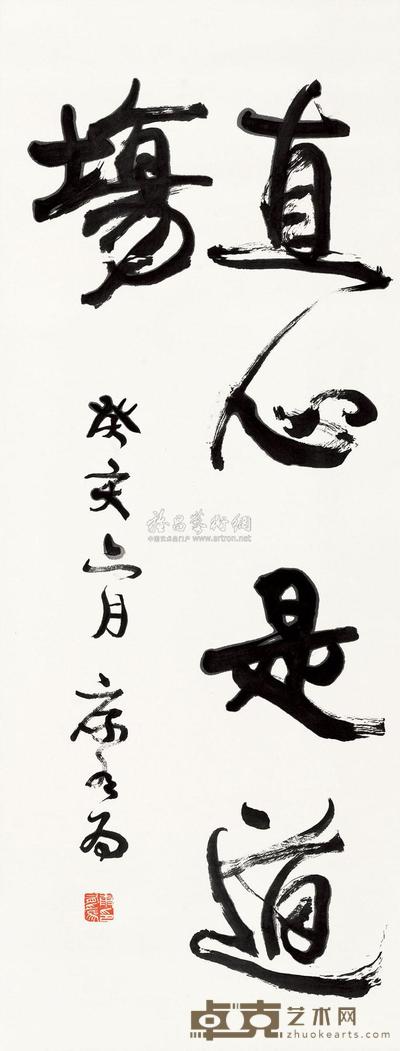 直心是道
場
癸亥六月 康有為
雅昌藝術網
中国艺术品门户 www.artron.net
卓克艺术网
zhuokearts.com